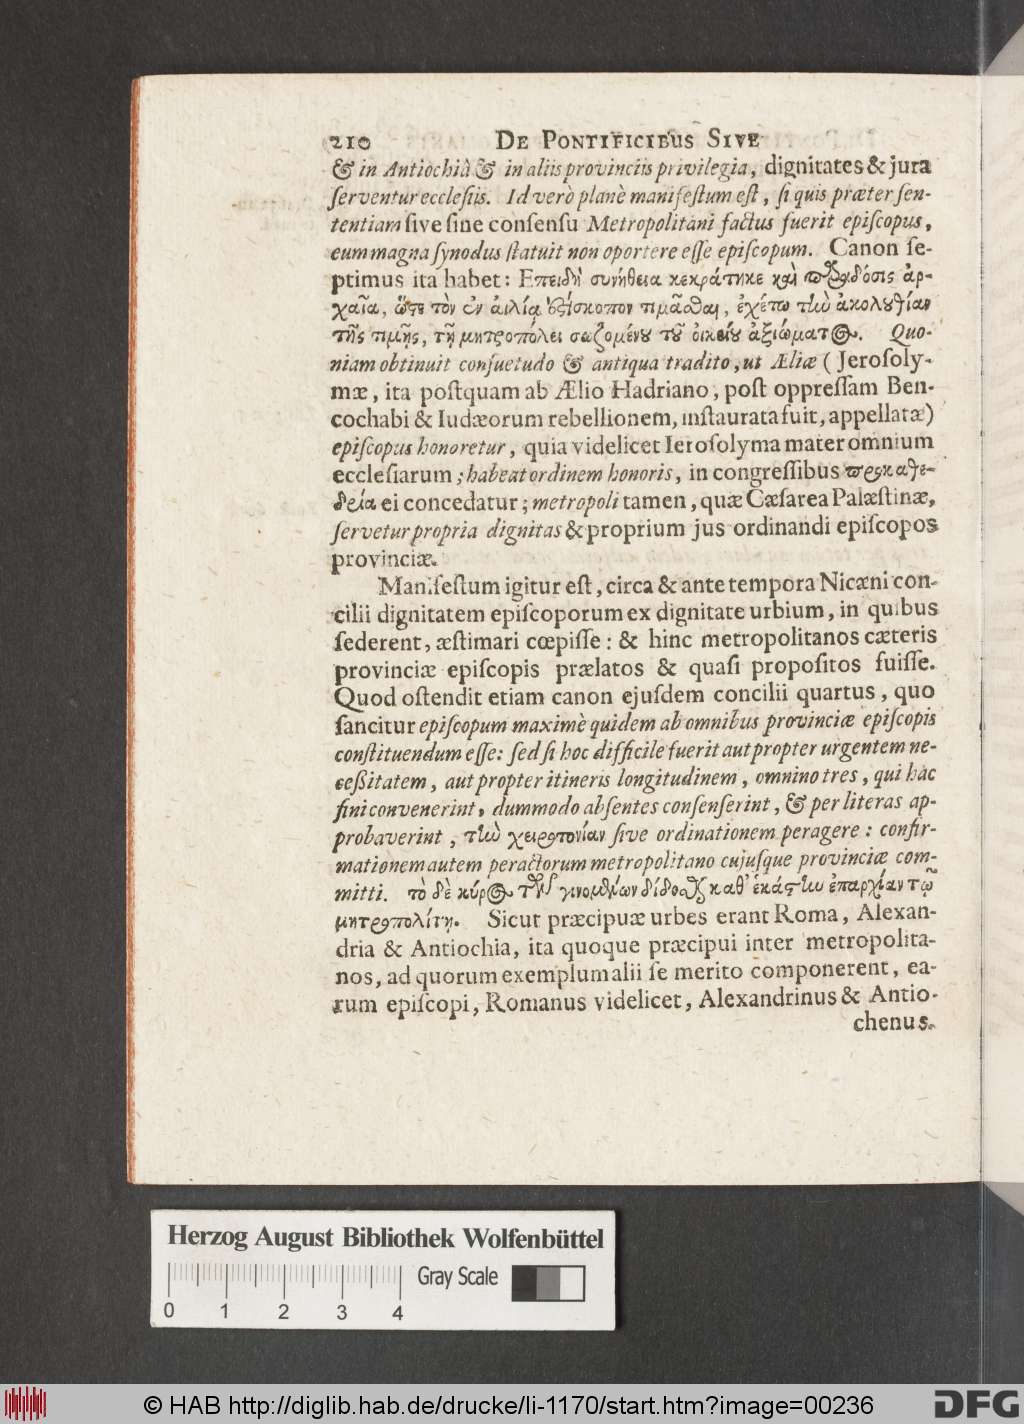 210 DE PONTIFICIBUS SIVE
& in Antiochiâ & in aliis provinciis privilegia, dignitates & jura
ſerventur eccleſiis. Id verò planè manifeſtum eſt, ſi quis præter ſen-
tentiam ſive ſine conſenſu Metropolitani factus fuerit epiſcopus,
eum magna ſynodus ſtatuit non oportere eſſe epiſcopum. Canon ſe-
ptimus ita habet: Επειδὴ συνήθεια κεκράτηκε καὶ παράδοσις ἀρ-
χαῖα, ὥςε τὸν ἐν αἰλίᾳ ἐπίσκοπον τιμᾶσθαι, ἐχέτω τὴν ἀκολουθίαν
τῆς τιμῆς, τῇ μητροπόλει σωζομένου τοῦ οἰκείου ἀξιώματος. Quo-
niam obtinuit conſuetudo & antiqua tradito, ut Æliæ (Jeroſoly-
mæ, ita poſtquam ab Ælio Hadriano, poſt oppreſſam Ben-
cochabi & Iudæorum rebellionem, inſtaurata fuit, appellatæ)
epiſcopus honoretur, quia videlicet Ieroſolyma mater omnium
eccleſiarum; habeat ordinem honoris, in congreſſibus προκαθε-
δρία ei concedatur; metropoli tamen, quæ Cæſarea Palæſtinæ,
ſervetur propria dignitas & proprium jus ordinandi epiſcopos
provinciæ.
Manifeſtum igitur eſt, circa & ante tempora Nicæni con-
cilii dignitatem epiſcoporum ex dignitate urbium, in quibus
ſederent, æſtimari cœpiſſe: & hinc metropolitanos cæteris
provinciæ epiſcopis prælatos & quaſi propoſitos fuiſſe.
Quod oſtendit etiam canon ejuſdem concilii quartus, quo
ſancitur epiſcopum maximè quidem ab omnibus provinciæ epiſcopis
conſtituendum eſſe: ſed ſi hoc difficile fuerit aut propter urgentem ne-
ceßitatem, aut propter itineris longitudinem, omnino tres, qui hâc
fini convenerint, dummodo abſentes conſenſerint, & per literas ap-
probaverint, τὴν χειροτονίαν ſive ordinationem peragere: confir-
mationem autem peractorum metropolitano cujuſque provinciæ com-
mitti. τὸ δὲ κύρος τῶν γινομένων δίδοσθαι καθ' ἑκάστην ἐπαρχίαν τῷ
μητροπολίτῃ. Sicut præcipuæ urbes erant Roma, Alexan-
dria & Antiochia, ita quoque præcipui inter metropolita-
nos, ad quorum exemplum alii ſe merito componerent, ea-
rum epiſcopi, Romanus videlicet, Alexandrinus & Antio-
chenus.
Herzog August Bibliothek Wolfenbüttel
Gray Scale
0 1 2 3 4
© HAB http://diglib.hab.de/drucke/li-1170/start.htm?image=00236
DFG